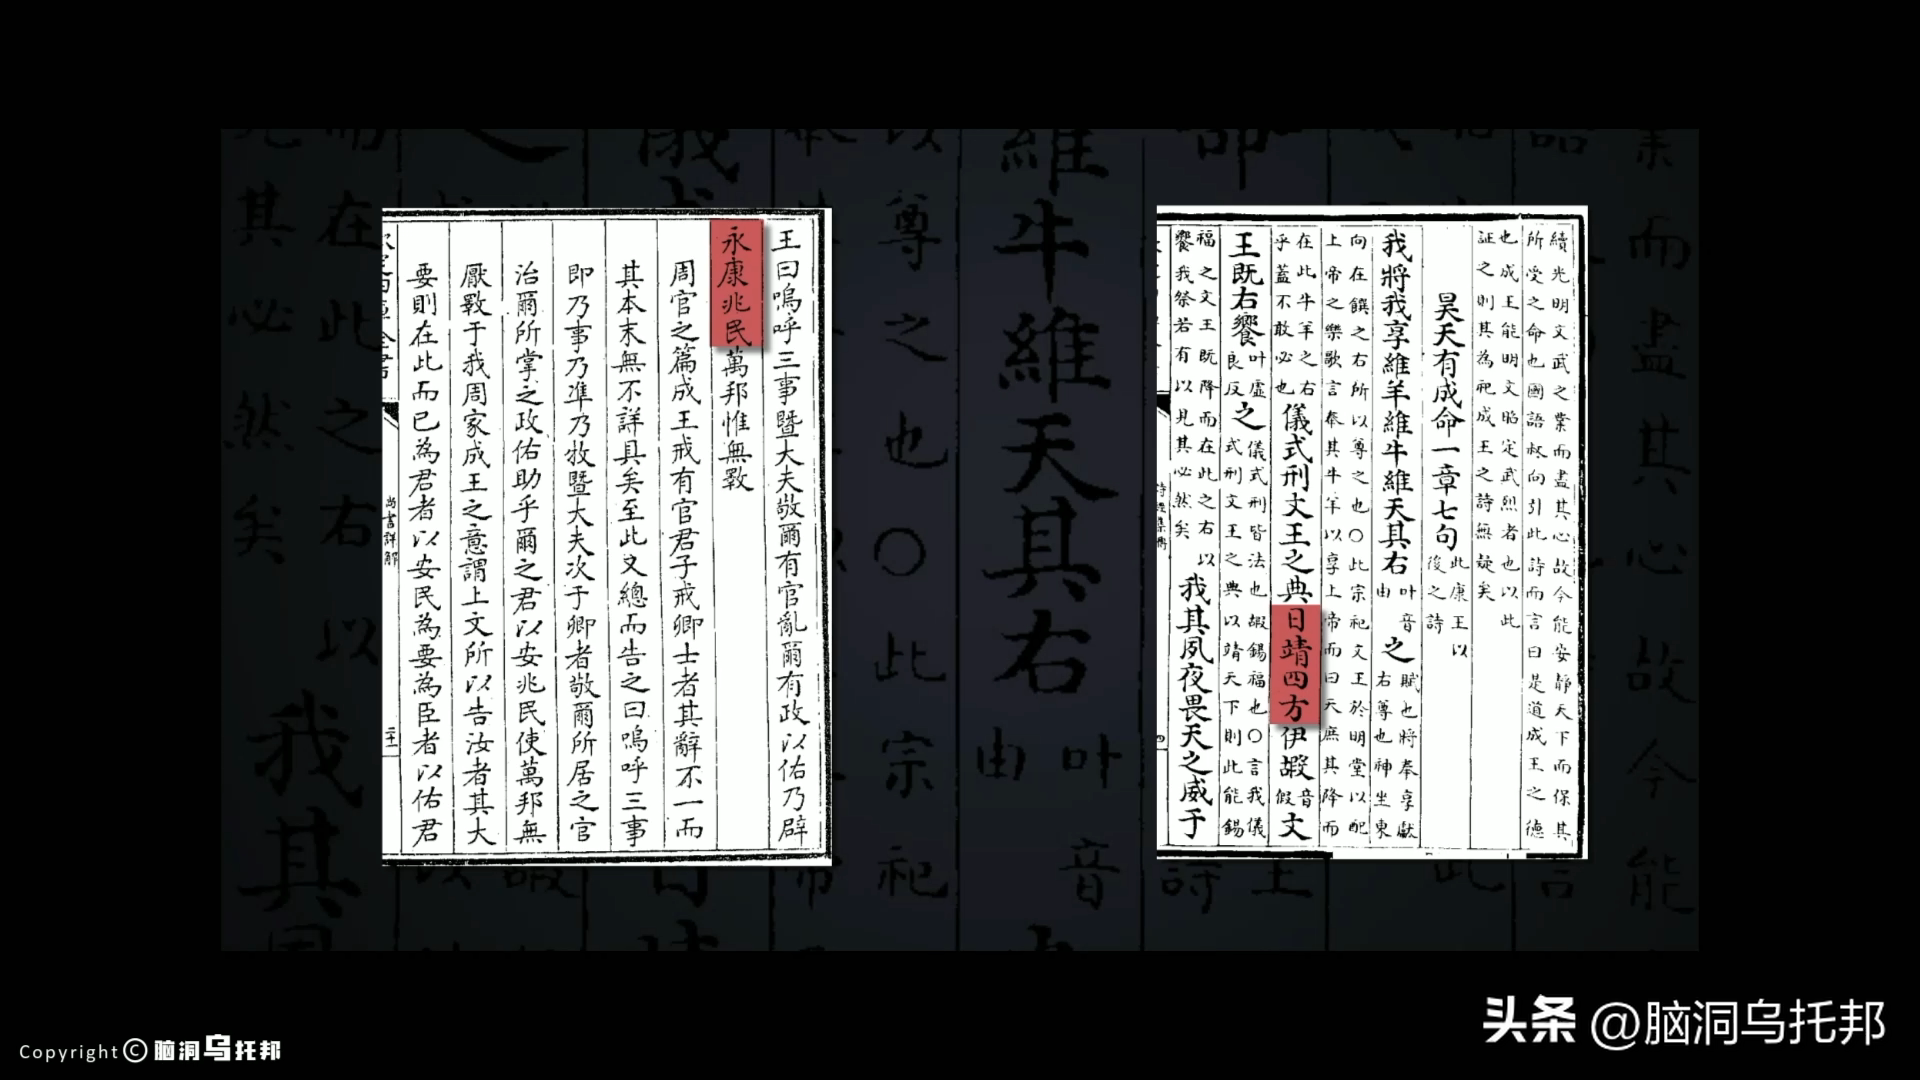 王曰嗚呼三事暨大夫敬爾有官亂爾有政以佑乃辟
永康兆民萬邦惟無斁
周官之篇成王戒有官君子戒卿士者其辭不一而
其本末無不詳具矣至此又總而告之曰嗚呼三事
即乃事乃準乃牧暨大夫次于卿者敬爾所居之官
治爾所掌之政佑助乎爾之君以安兆民使萬邦無
厭斁于我周家成王之意謂上文所以告汝者其大
要則在此而已為君者以安民為要為臣者以佑君
尚書詳解
續光明文武之業而盡其心故今能安靜天下而保其
所受之命也國語叔向引此詩而言曰是道成王之德
也成王能明文昭定武烈者也以此
証之則其為祀成王之詩無疑矣
昊天有成命一章七句此康王以後之詩
我將我享維羊維牛維天其右叶音由之賦也將奉享獻右尊也神坐東
向在饌之右所以尊之也○此宗祀文王於明堂以配
上帝之樂歌言奉其牛羊以享上帝而曰天庶其降而
在此牛羊之右乎蓋不敢必也儀式刑文王之典日靖四方伊嘏音假文
王既右饗叶虛良反之儀式刑皆法也嘏錫福也○言我儀式刑文王之典以靖天下則此能錫
福之文王既降而在此之右以饗我祭若有以見其必然矣我其夙夜畏天之威于
头条 @脑洞乌托邦
Copyright © 脑洞乌托邦